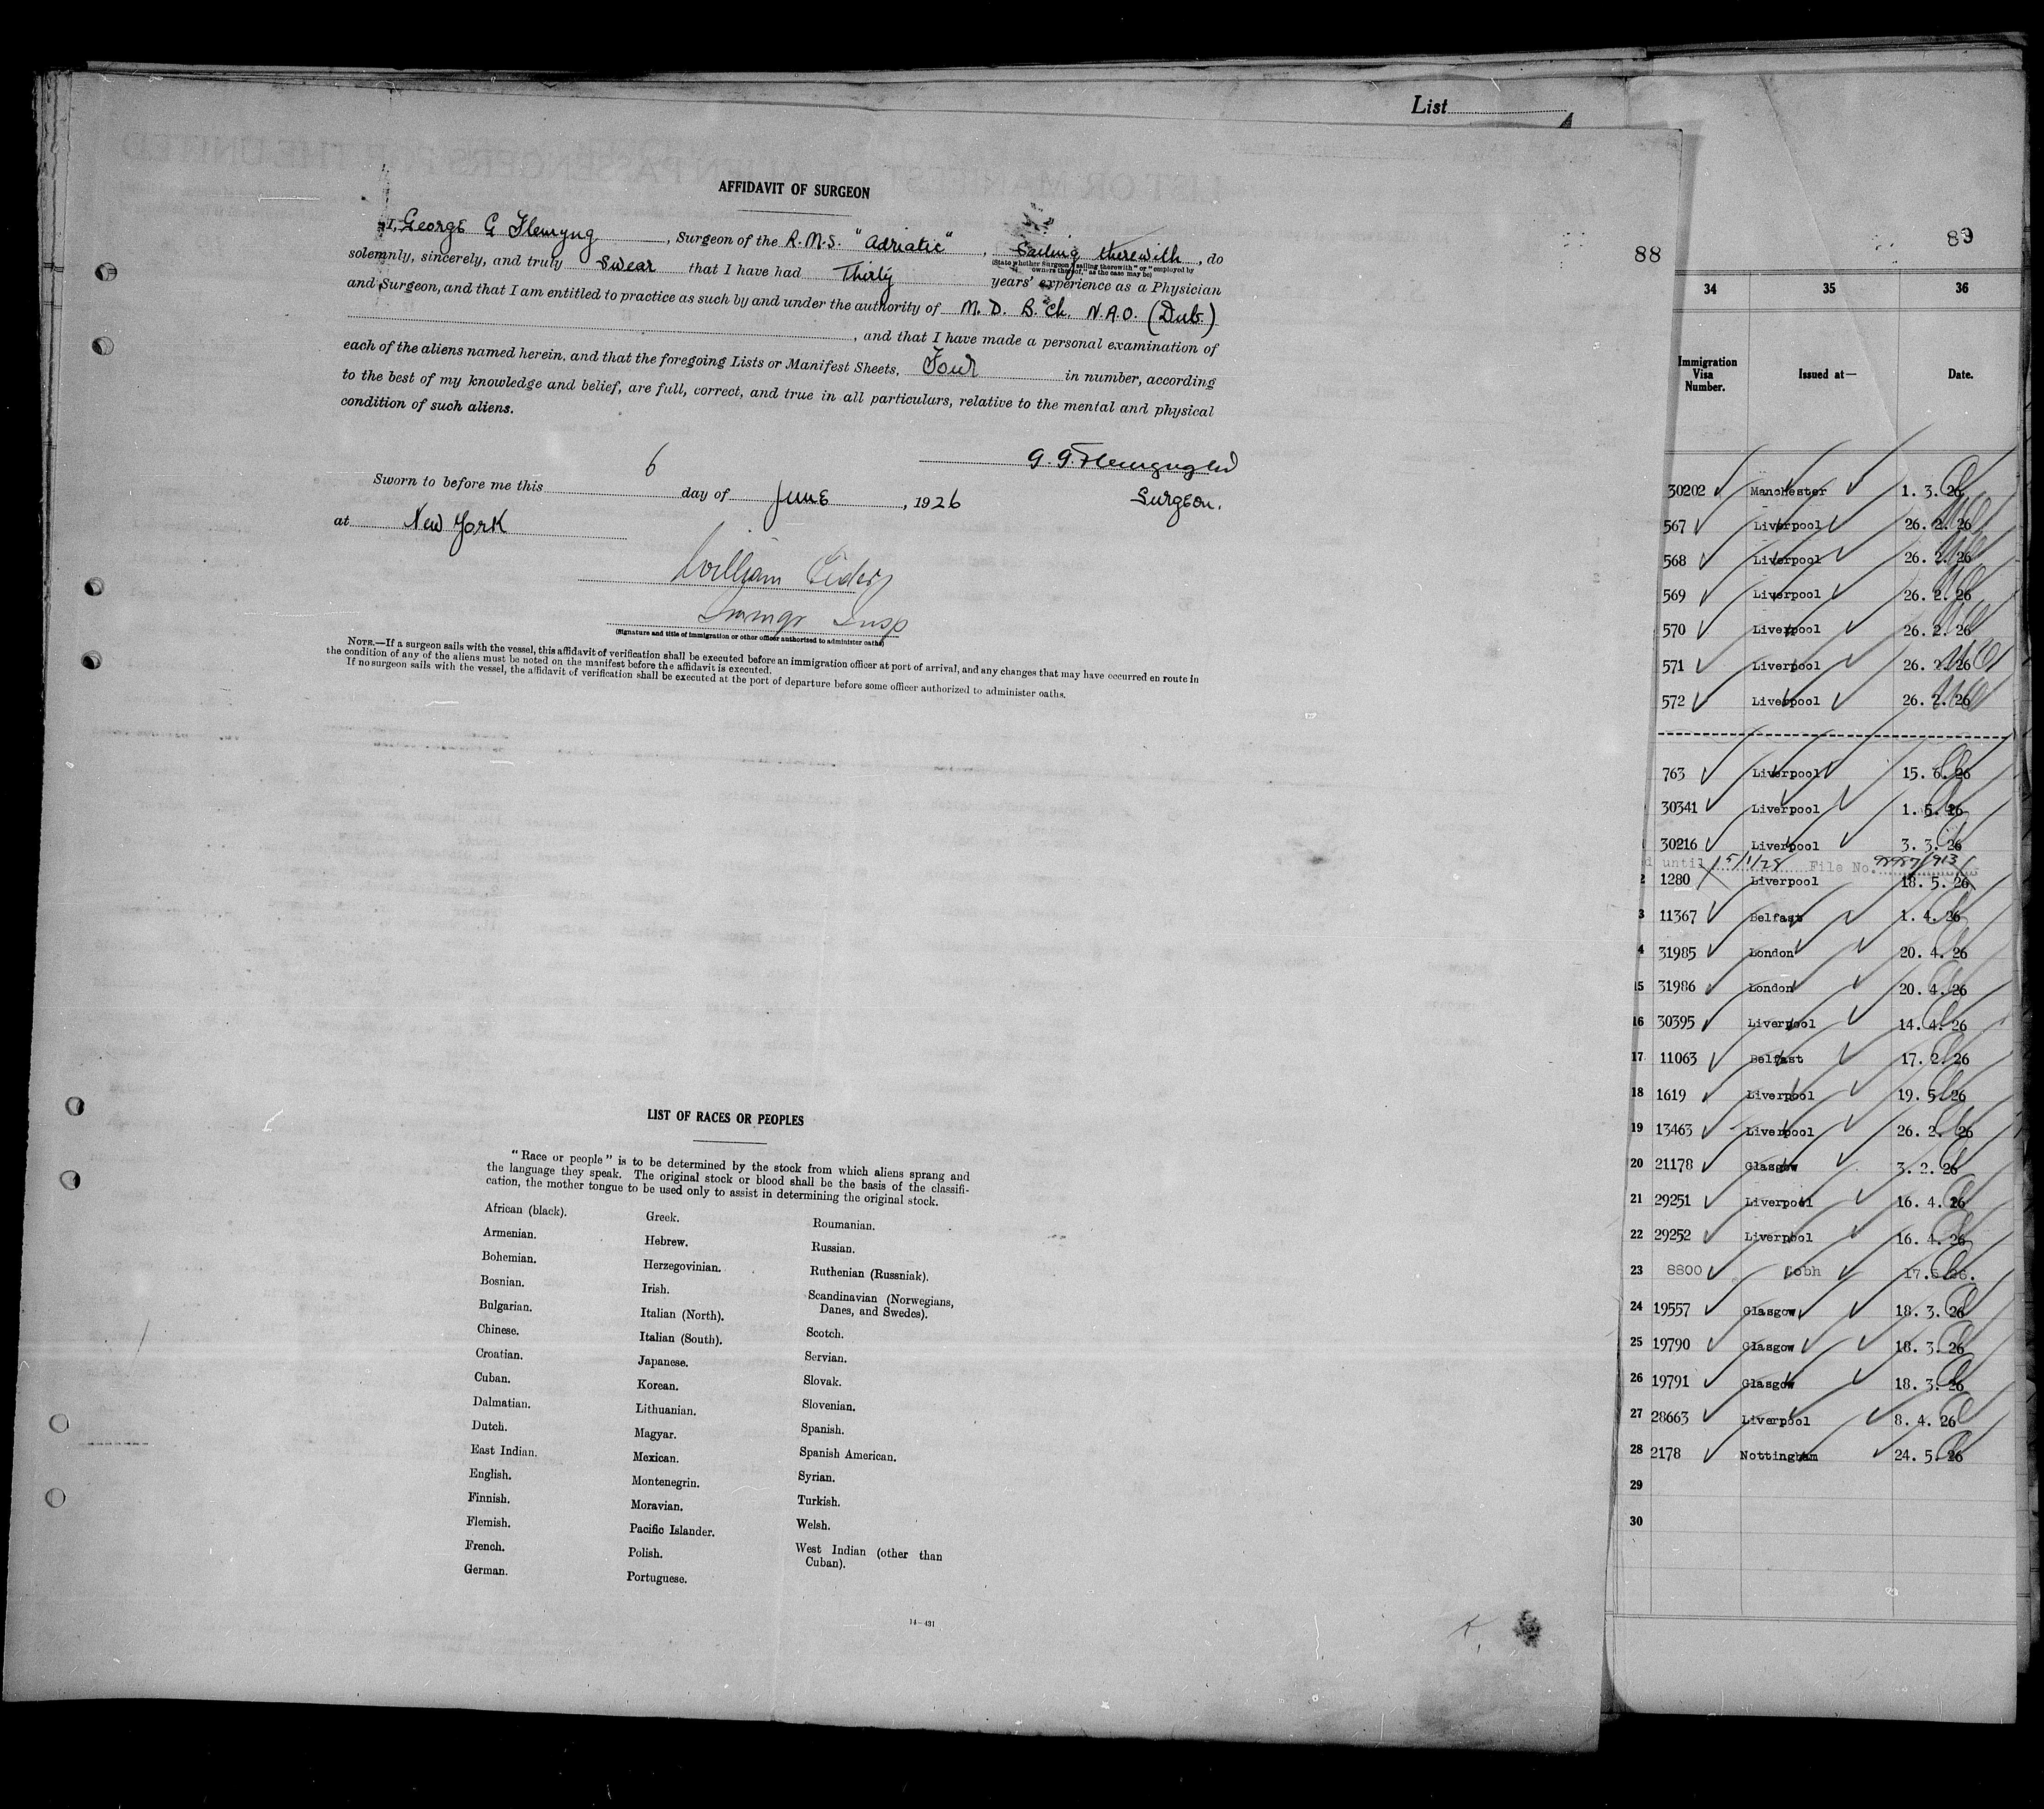 List
AFFIDAVIT OF SURGEON
I, George G Flemyng, Surgeon of the R.M.S. "Adriatic", Sailing therewith, do
(State whether Surgeon "sailing therewith" or "employed by
owners thereof," as the case may be)
solemnly, sincerely, and truly Swear that I have had Thirty years' experience as a Physician
and Surgeon, and that I am entitled to practice as such by and under the authority of M.D. B.Ch. N.A.O. (Dub.)
, and that I have made a personal examination of
each of the aliens named herein, and that the foregoing Lists or Manifest Sheets, Four in number, according
to the best of my knowledge and belief, are full, correct, and true in all particulars, relative to the mental and physical
condition of such aliens.
G. G. Flemyng
Surgeon.
Sworn to before me this 6 day of June, 1926
at New York
William
Immgr Insp
(Signature and title of immigration or other officer authorized to administer oaths)
NOTE.—If a surgeon sails with the vessel, this affidavit of verification shall be executed before an immigration officer at port of arrival, and any changes that may have occurred en route in
the condition of any of the aliens must be noted on the manifest before the affidavit is executed.
If no surgeon sails with the vessel, the affidavit of verification shall be executed at the port of departure before some officer authorized to administer oaths.
LIST OF RACES OR PEOPLES
"Race or people" is to be determined by the stock from which aliens sprang and
the language they speak. The original stock or blood shall be the basis of the classifi-
cation, the mother tongue to be used only to assist in determining the original stock.
African (black).
Armenian.
Bohemian.
Bosnian.
Bulgarian.
Chinese.
Croatian.
Cuban.
Dalmatian.
Dutch.
East Indian.
English.
Finnish.
Flemish.
French.
German.
Greek.
Hebrew.
Herzegovinian.
Irish.
Italian (North).
Italian (South).
Japanese.
Korean.
Lithuanian.
Magyar.
Mexican.
Montenegrin.
Moravian.
Pacific Islander.
Polish.
Portuguese.
Roumanian.
Russian.
Ruthenian (Russniak).
Scandinavian (Norwegians,
Danes, and Swedes).
Scotch.
Servian.
Slovak.
Slovenian.
Spanish.
Spanish American.
Syrian.
Turkish.
Welsh.
West Indian (other than
Cuban).
14—431
88
89
34 35 36
Immigration
Visa
Number.
Issued at—
Date.
30202 Manchester 1. 3. 26
567 Liverpool 26. 2. 26
568 Liverpool 26. 2. 26
569 Liverpool 26. 2. 26
570 Liverpool 26. 2. 26
571 Liverpool 26. 2. 26
572 Liverpool 26. 2. 26
763 Liverpool 15. 6. 26
30341 Liverpool 1. 5. 26
30216 Liverpool 3. 3. 26
d until 5/1/25 File No.
2 1280 Liverpool 18. 5. 26
3 11367 Belfast 1. 4. 26
4 31985 London 20. 4. 26
15 31986 London 20. 4. 26
16 30395 Liverpool 14. 4. 26
17 11063 Belfast 17. 2. 26
18 1619 Liverpool 19. 5. 26
19 13463 Liverpool 26. 2. 26
20 21178 Glasgow 3. 2. 26
21 29251 Liverpool 16. 4. 26
22 29252 Liverpool 16. 4. 26
23 8800 Cobh 17. 26.
24 19557 Glasgow 18. 3. 26
25 19790 Glasgow 18. 3. 26
26 19791 Glasgow 18. 3. 26
27 28663 Liverpool 8. 4. 26
28 2178 Nottingham 24. 5. 26
29
30